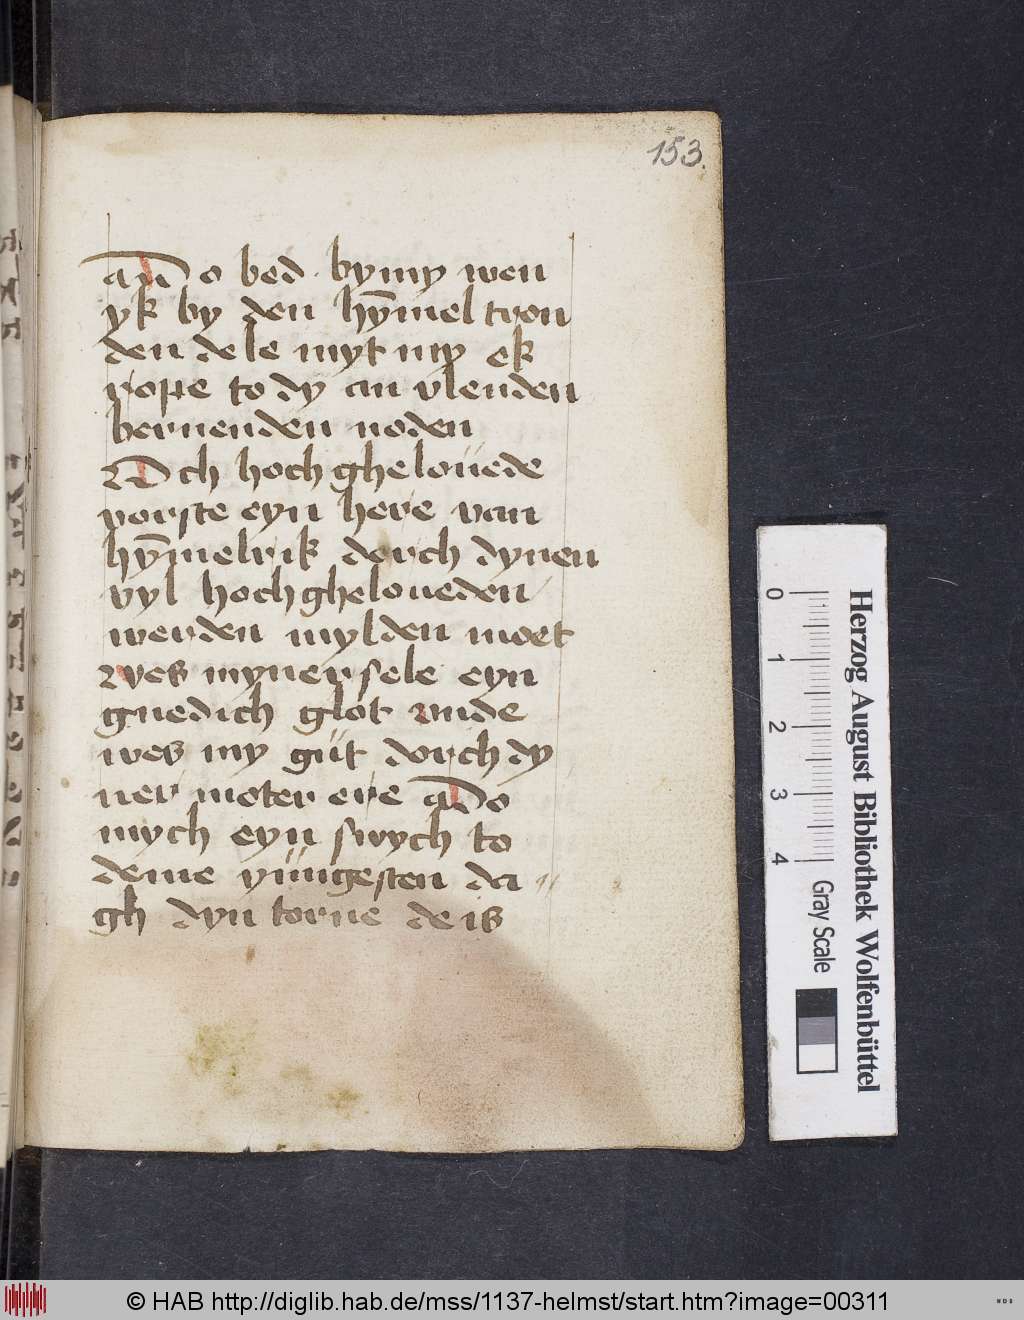 153.
an o bed by my wen
yk by den hȳmel tron
den dele myt my ek
rope to dy an vlenden
bernenden noden
Och hoch gheloüede
vorste eyn here van
hȳmelrik dorch dynen
vyl hoch gheloueden
werden mylden moet
wes myner sele eyn
gnedich glot vnde
wes my güt dorch dy
ner moter ere do
mych eyn swych to
deme yüngesten da
gh dyn torne de is
0 1 2 3 4
Gray Scale
Herzog August Bibliothek Wolfenbüttel
© HAB http://diglib.hab.de/mss/1137-helmst/start.htm?image=00311